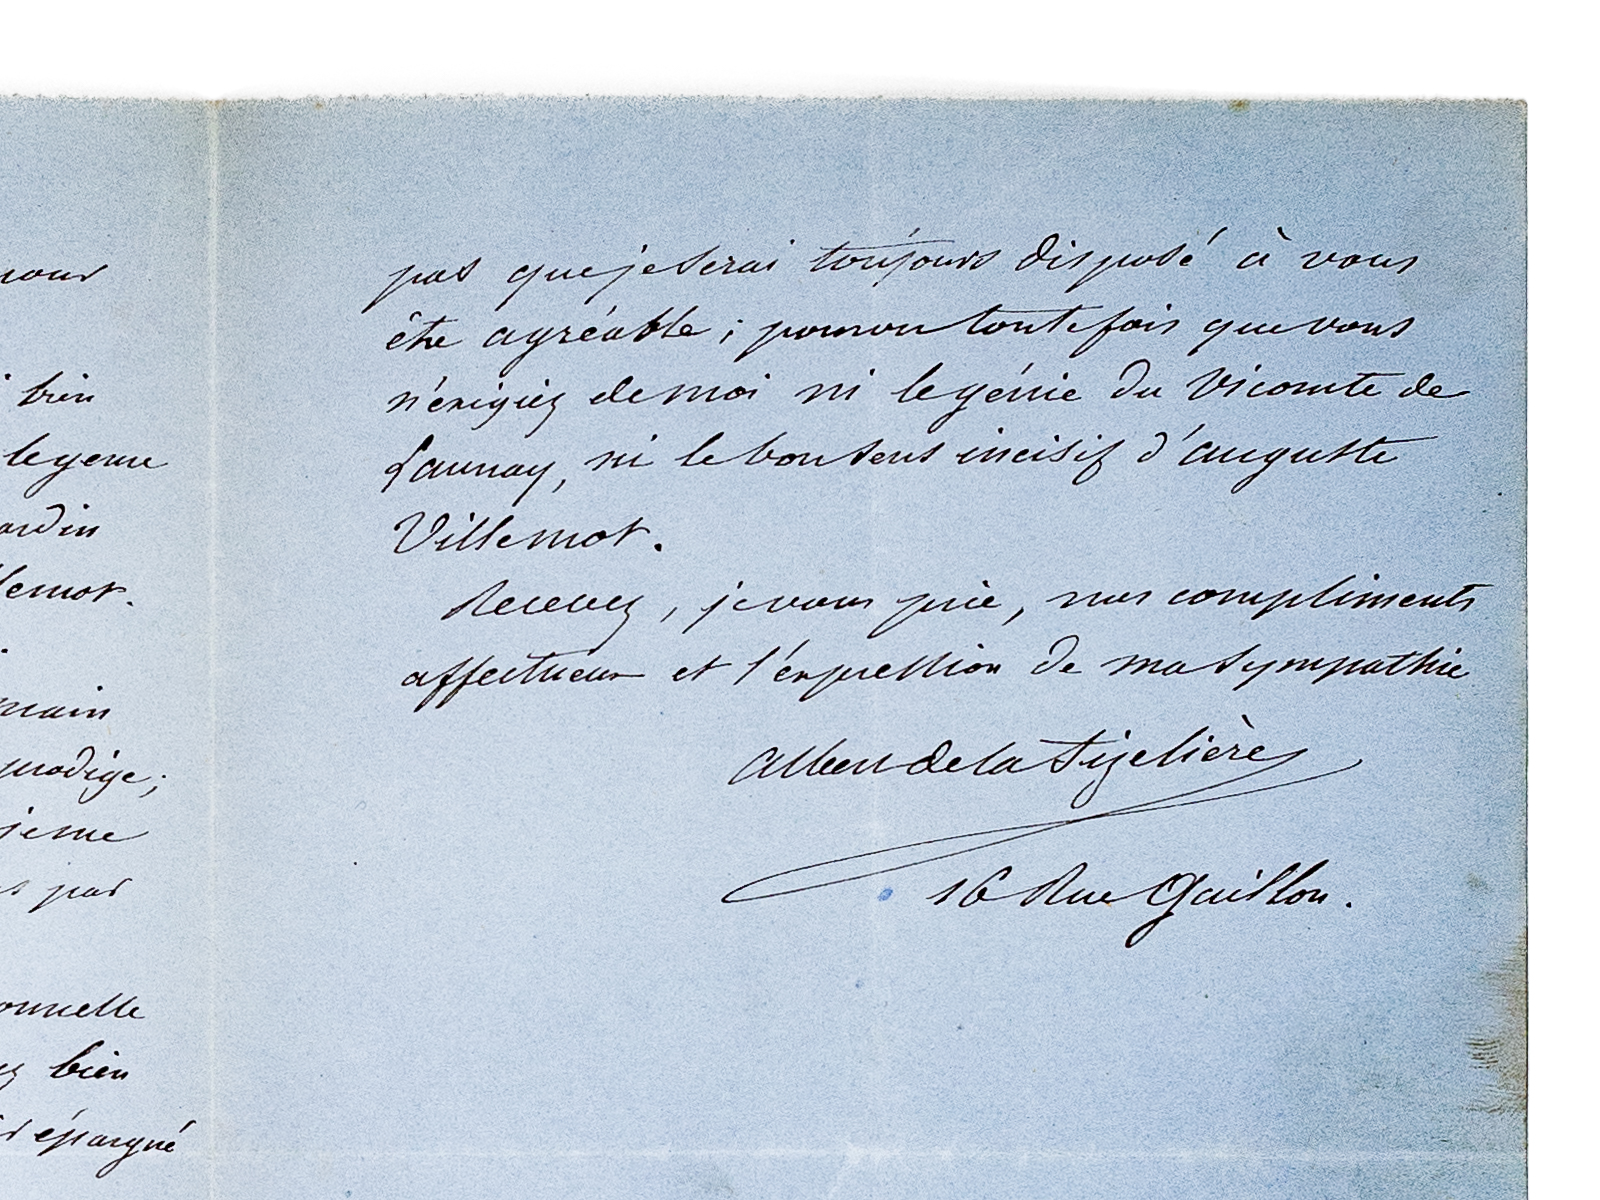 pour
bien
le genre
ardin
lemot.
main
prodige;
je me
par
onnelle
bien
épargné
pas que je serai toujours disposé à vous
être agréable ; pourvu toutefois que vous
n'exigiez de moi ni le génie du Vicomte de
Launay, ni le bon sens incisif d'auguste
Villemot.
Recevez, je vous prie, mes compliments
affectueux et l'expression de ma sympathie
Albert de la Fizelière
16 Rue Gaillon.